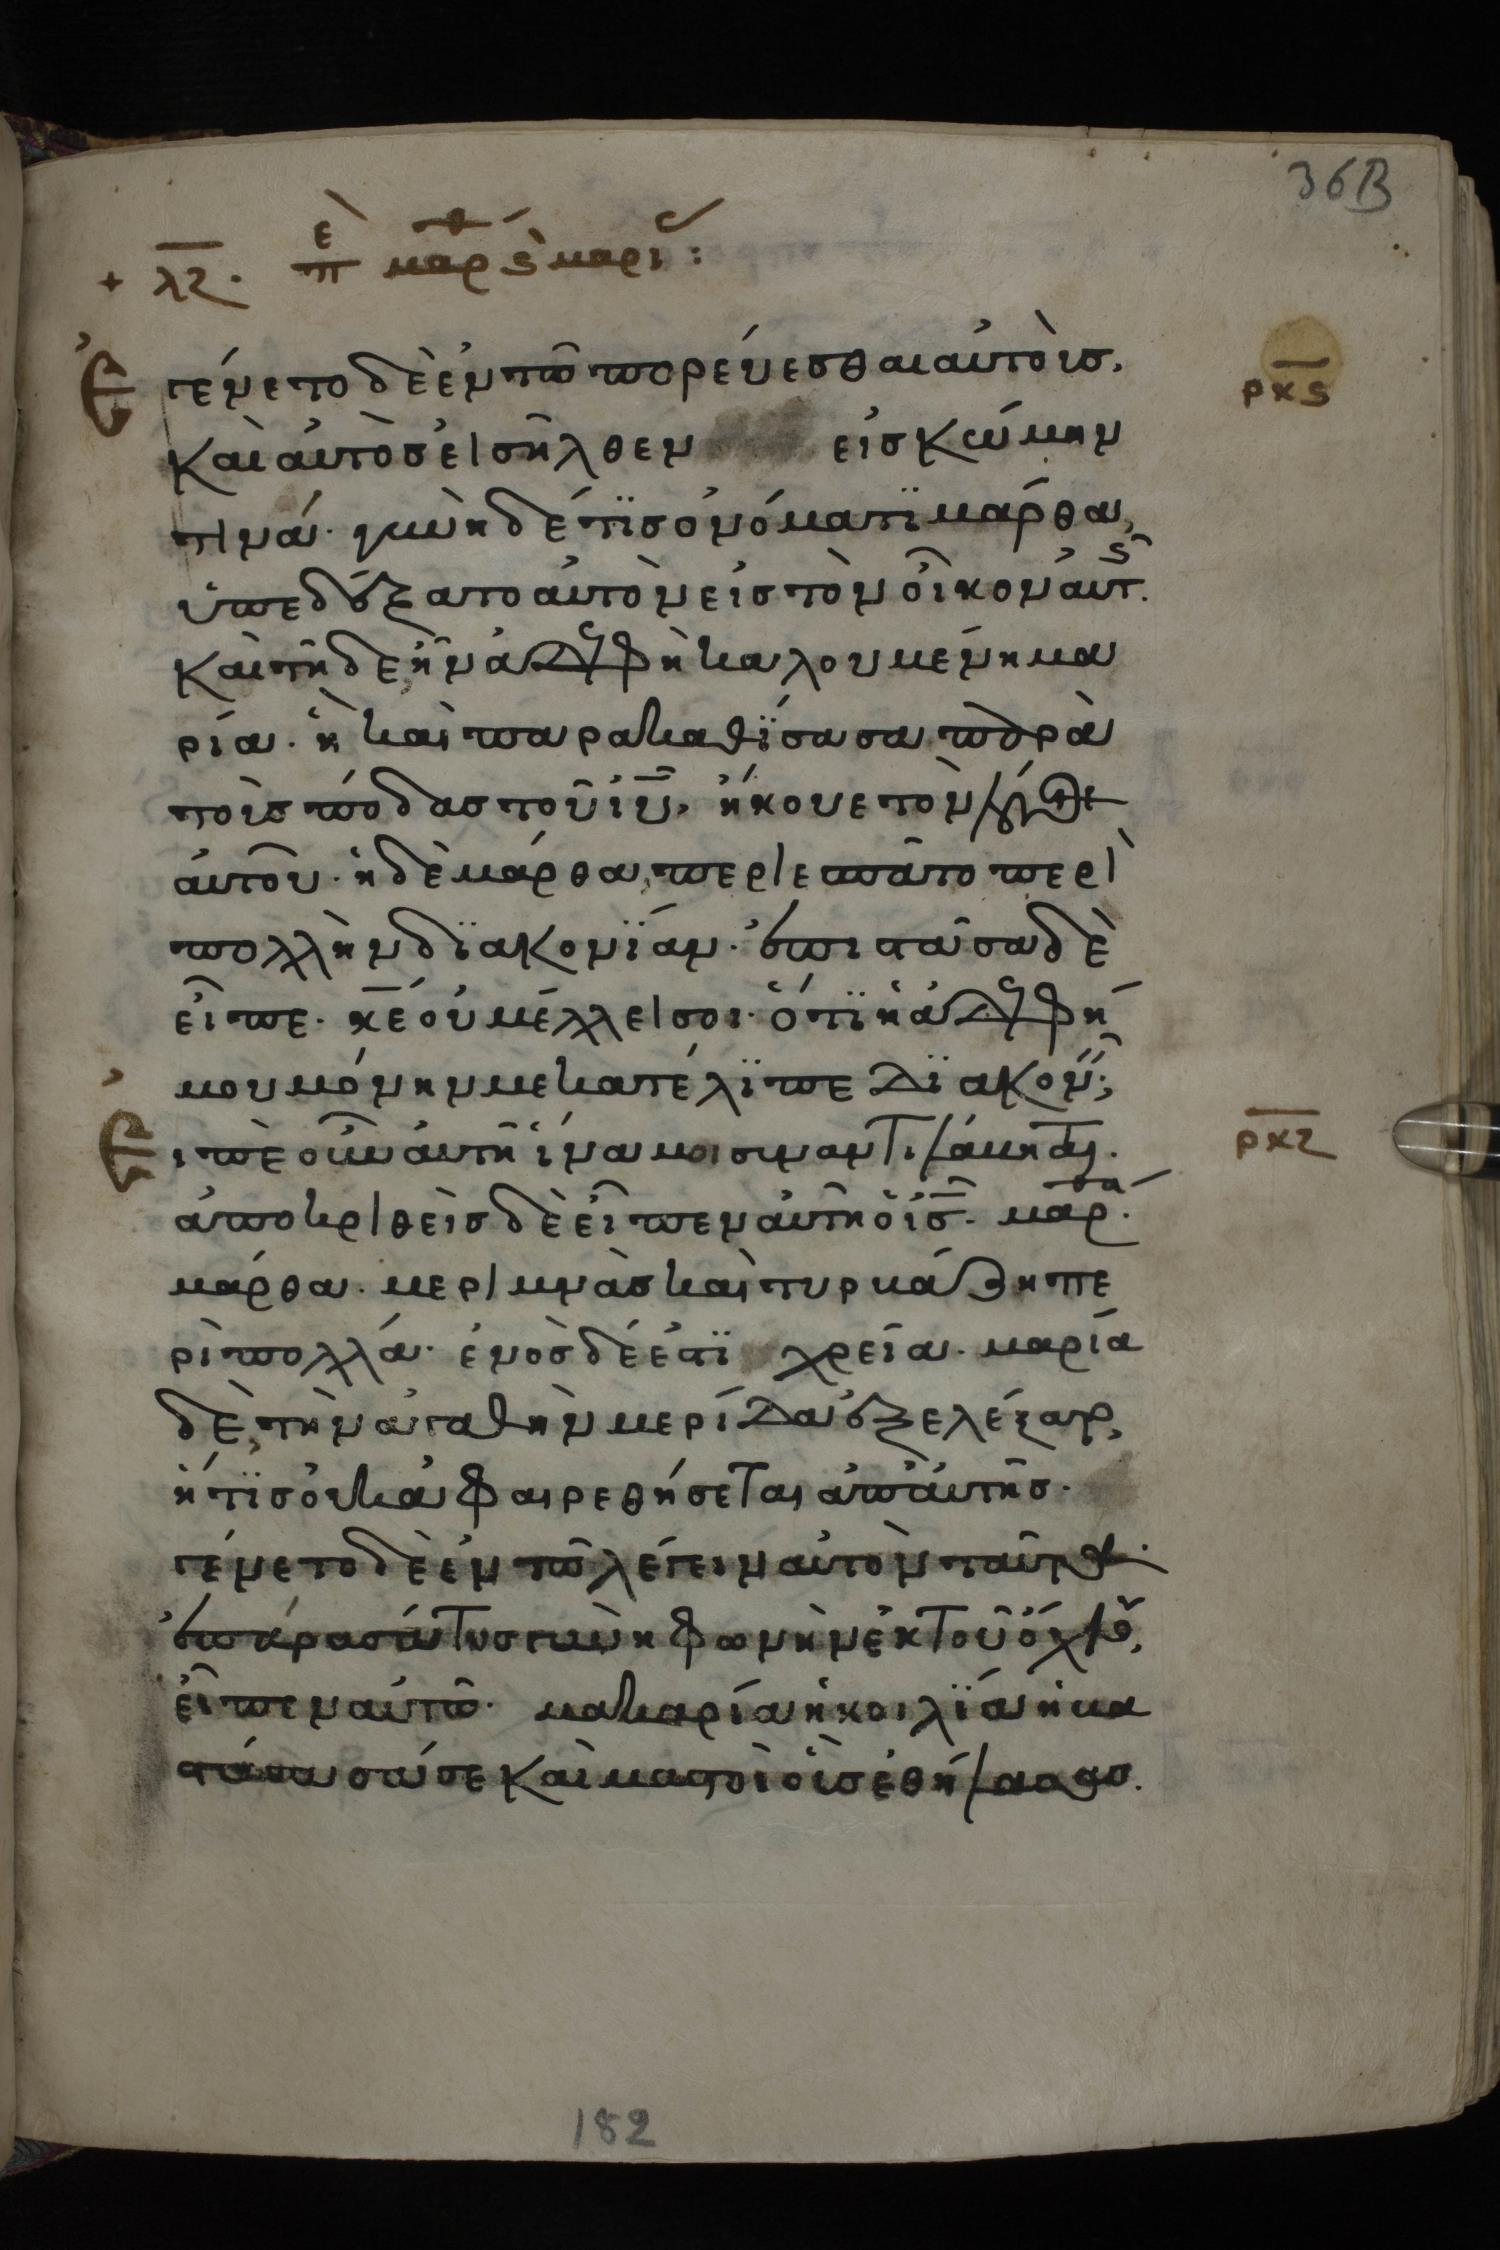 36B
+ λζ. ἐπ μαρθ ϛ μαρι :
Ἐγένετο δὲ ἐν τῶ πορέυεσθαι αὐτοὺσ,
ρκϛ
καὶ αὐτὸσ εἰσῆλθεν εἰσ κώμην
τινά· γυνὴ δέ τϊσ ὀνόματϊ μάρθα,
ὑπεδέξατο αὐτὸν εἰσ τὸν οἶκον αὐτ.
καὶ τῆδε ἦν ἀδελφὴ καλουμένη μα
ρία· ἣ καὶ παρακαθΐσασα παρὰ
τοὺσ πόδασ τοῦ ἰῦ, ἤκουε τὸν λόγον
αὐτοῦ· ἡ δὲ μάρθα, περιεσπᾶτο περὶ
πολλὴν δϊακονΐαν· ἐπιστᾶσα δὲ
εἶπε· κ̅ε οὐ μέλλει σοι· ὅτϊ ἡ ἀδελφή
μου μόνην με κατέλϊπε δϊακον;
Εἰπὲ οὖν αὐτῆ ἵνα μοι συναντιλάβηται.
ρκζ
ἀποκριθεὶσ δὲ εἶπεν αὐτῆ ὁ ἰ̅σ̅· μάρθα.
μάρθα· μεριμνᾶσ καὶ τυρβάζη πε
ρὶ πολλά· ἑνὸσ δέ ἐστϊ χρεία· μαρία
δὲ, τὴν ἀγαθὴν μερίδα ἐξελέξατο,
ἥτϊσ οὐκ ἀφαιρεθήσεται ἀπ' αὐτῆσ.
γένετο δὲ ἐν τῶ λέγειν αὐτὸν ταῦτα.
ἐπάρασά τισ γυνὴ φωνὴν ἐκ τοῦ ὄχλου,
εἶπεν αὐτῶ· μακαρία ἡ κοιλΐα ἡ βα
στάσασά σε καὶ μαστοὶ οὓσ ἐθήλασασ.
182